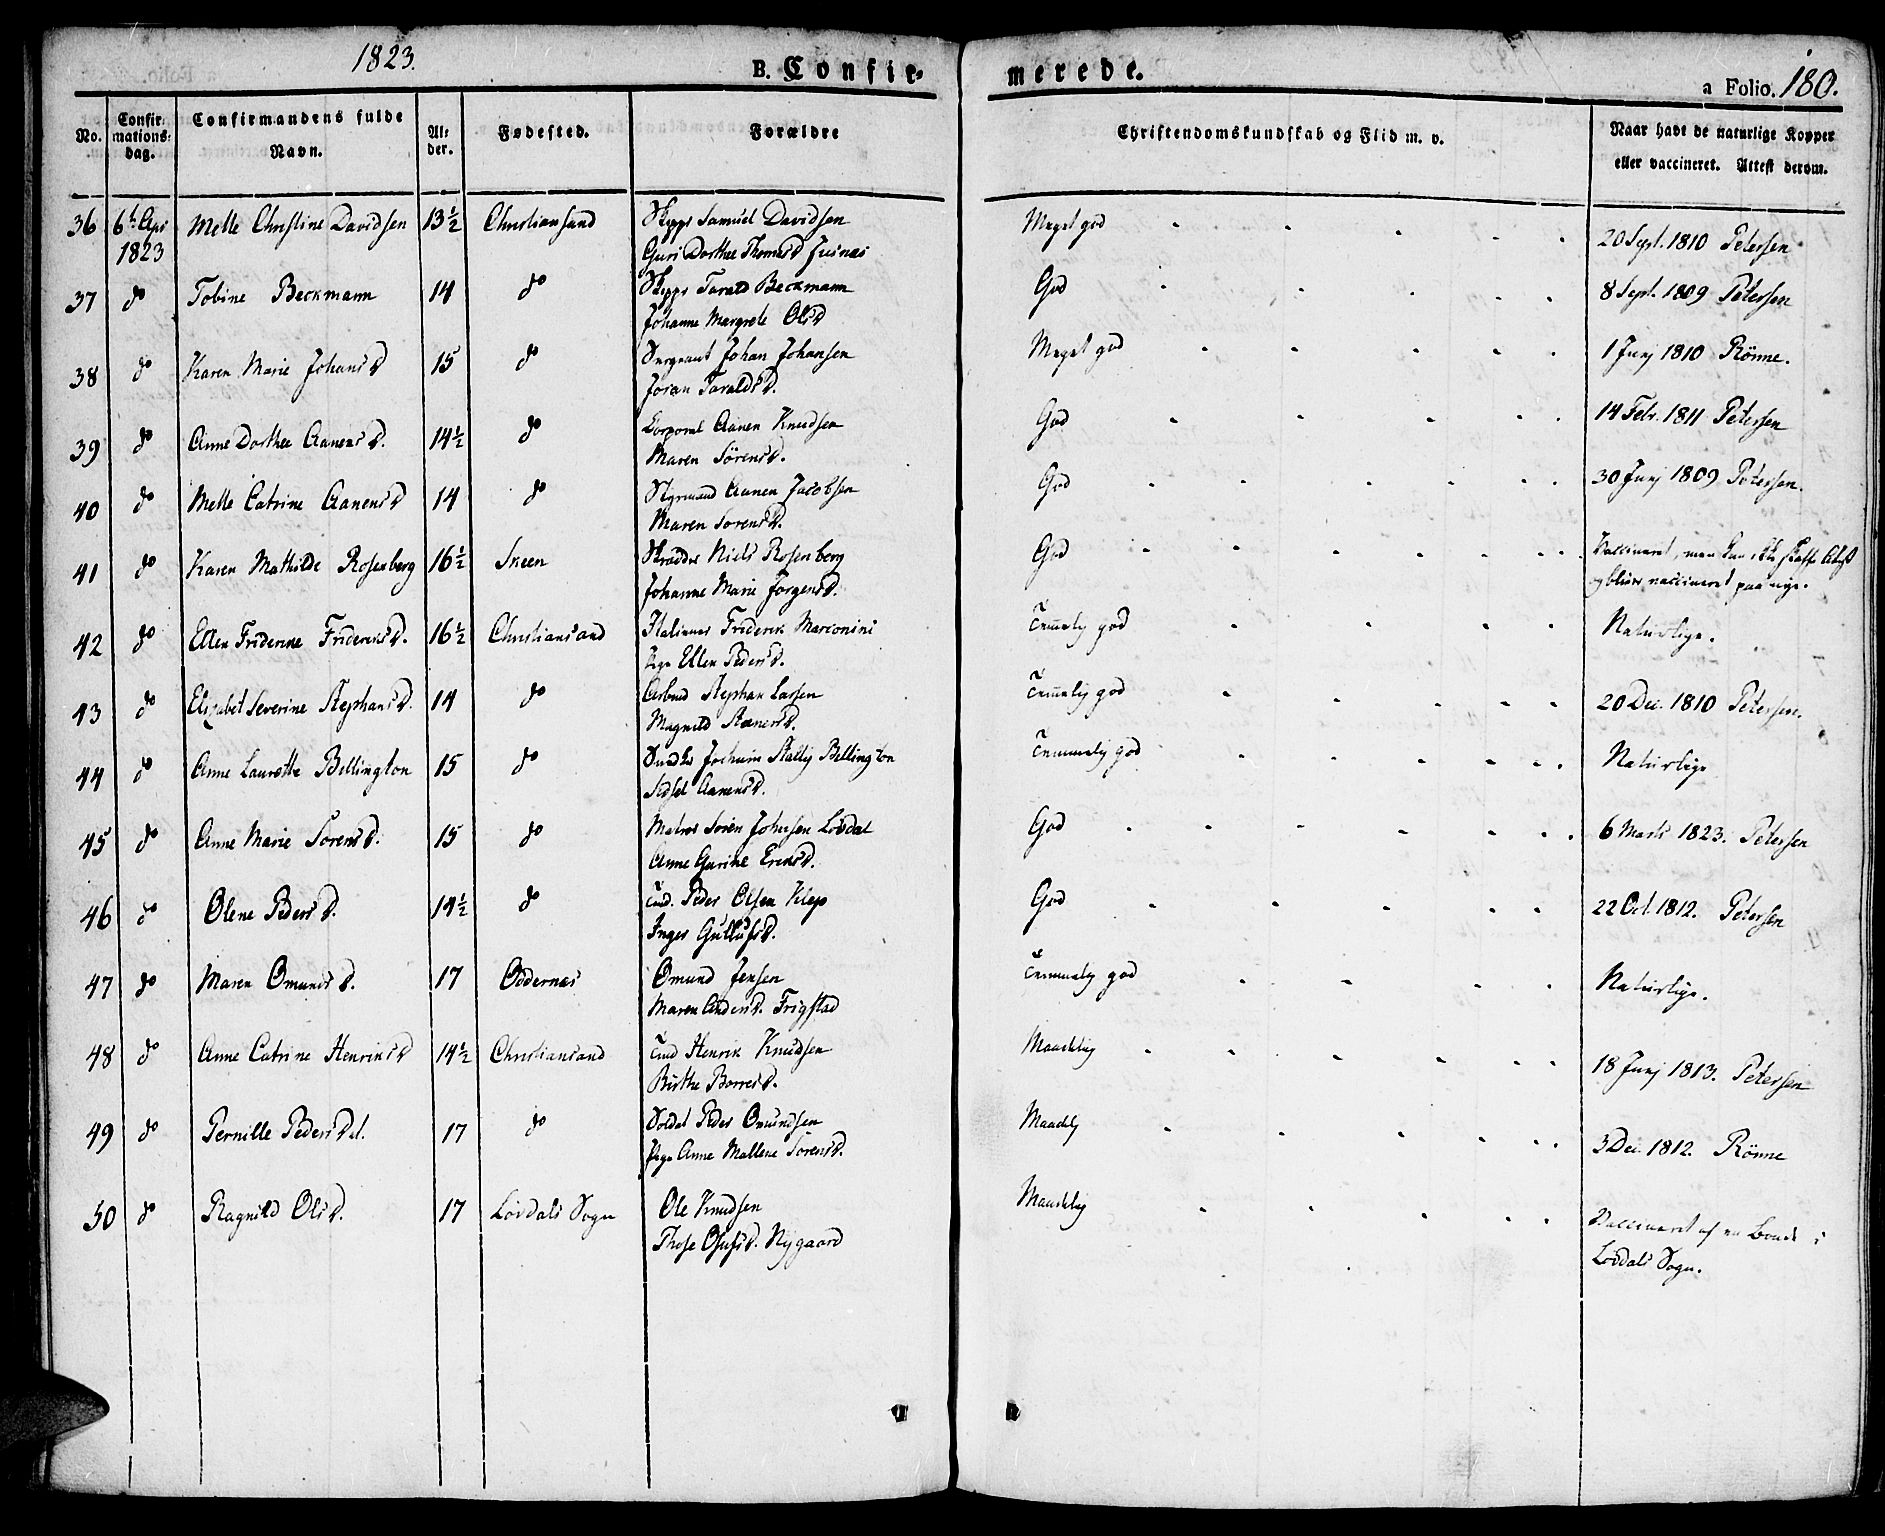 1823.
B. Confir-
merede.
a Folio. 180.
No.
Confir-
mations-
dag.
Confirmandens fulde
Navn.
Al-
der.
Fødested.
Forældre
Christendomskundskab og Flid m. v.
Naar havt de naturlige Kopper
eller vaccineret. Attest derom.
36 6te Apr 1823 Mette Christine Davidsen 13½ Christiansand
Samuel Davidsen
Guri Dorthea Thomasd
Meget god
20 Sept. 1810 Petersen
37 do Tobine Beckmann 14 do
Tarald Beckmann
Johanne Margrete Olsd
God
8 Sept. 1809 Petersen
38 do Karen Marie Johansd 15 do
Sergeant Johan Johansen
Joran Taraldsd.
Meget god
1 Junj 1810 Rönne.
39 do Anne Dorthea Aanensd. 14½ do
Corporal Aanen Knudsen
Maren Sörensd.
God
14 Febr. 1811 Petersen
40 do Mette Catrine Aanensd 14 do
Styrmand Aanen Jacobsen
Maren Sorensd.
God
30 Junj 1809 Petersen.
41 do Karen Mathilde Rosenberg 16½ Skeen
Skrædder Niels Rosenberg
Johanne Marie Jorgensd.
God
Vaccineret, men kan ikke skaffe Attest
og bliver vaccineret paa nye.
42 do Ellen Friderikke Frideriksd. 16½ Christiansand
Italiener Friderik Marconini
Pige Ellen Pedersd.
Temmelig god
Naturlige.
43 do Elisabet Severine Stephansd. 14 do
Stephan Larsen
Magnild
Temelig god
20 Dec. 1810 Petersen.
44 do Anne Laurette Billington 15 do
Jochum Billington
Sidsel Aanensd.
Temmelig god
Naturlige
45 do Anne Marie Sorensd. 15 do
Matros Soren Johnsen Lovdal
Anne Gurine Eriksd.
God
6 Marts 1823. Petersen
46 do Olene Pedersd. 14½ do
Peder Olsen Klep
Inger Gullufsd.
God
22 Oct. 1812. Petersen
47 do Maren Omunds d. 17 Oddernæs
Omund Jensen
Maren Andersd. Frigstad
Temmelig god
Naturlige.
48 do Anne Catrine Henriksd 14½ Christiansand
Henrik Knudsen
Birthe Borresd.
Maadelig
18 Junj 1813. Petersen
49 do Pernille Pedersd. 17 do
Soldat Peder Omundsen
Pige Anne Mallene Sorensd.
Maadelig
3 Dec. 1812. Rönne
50 do Ragnild Olsd. 17 Lovdals Sogn
Ole Knudsen
Olufsd. Nygaard
Maadelig
Vaccineret af en Bonde i
Lovdals Sogn.